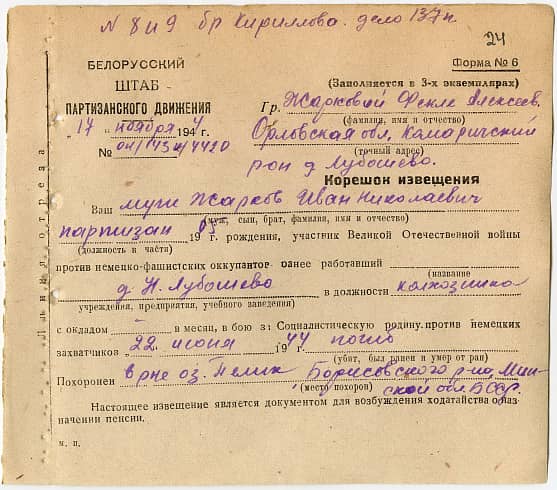 № 8 и 9 бр Кириллова. дело 137 п.
24
БЕЛОРУССКИЙ
ШТАБ
ПАРТИЗАНСКОГО ДВИЖЕНИЯ
"17" ноября 1944 г.
№ 041/143н/4420
Форма № 6
(Заполняется в 3-х экземплярах)
Гр. Жарковой Фекле Алексеев.
(фамилия, имя и отчество)
Орловская обл. Комаричский
(точный адрес)
рон д. Лубошево.
Корешок извещения
Ваш муж Жарков Иван Николаевич
(муж, сын, брат, фамилия, имя и отчество)
партизан 1905 г. рождения, участник Великой Отечественной войны
(должность и части)
против немецко-фашистских оккупантов ранее работавший
(название
д. Н. Лубошево в должности колхозника
учреждения, предприятия, учебного заведения)
с окладом в месяц, в бою за Социалистическую родину против немецких
захватчиков 22 июня 1944 погиб
(убит, был ранен и умер от ран)
Похоронен в р-не оз. Пелик Борисовского р-на Мин-
(место похорон)
ской обл. БССР.
Настоящее извещение является документом для возбуждения ходатайства о назначении пенсии.
м. п.
Линия отреза